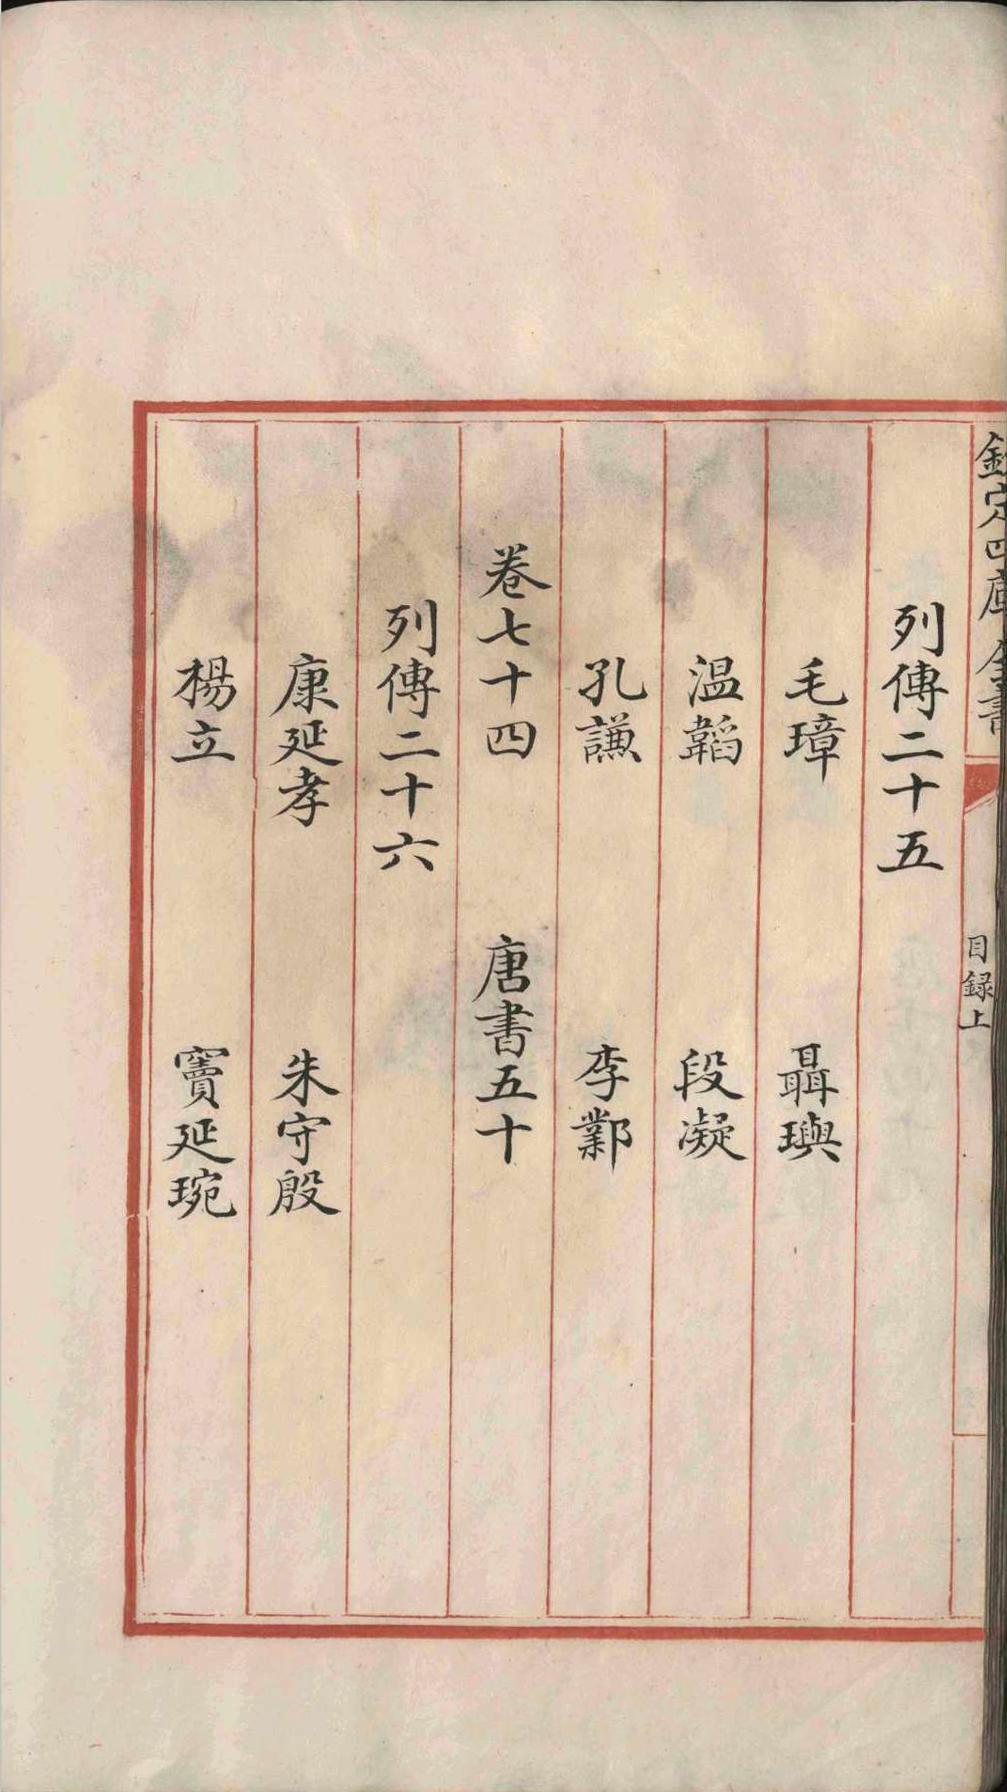 欽定四庫全書
目録上
列傳二十五
毛璋　聶璵
温韜　段凝
孔謙　李鄴
卷七十四　唐書五十
列傳二十六
康延孝　朱守殷
楊立　竇延琬